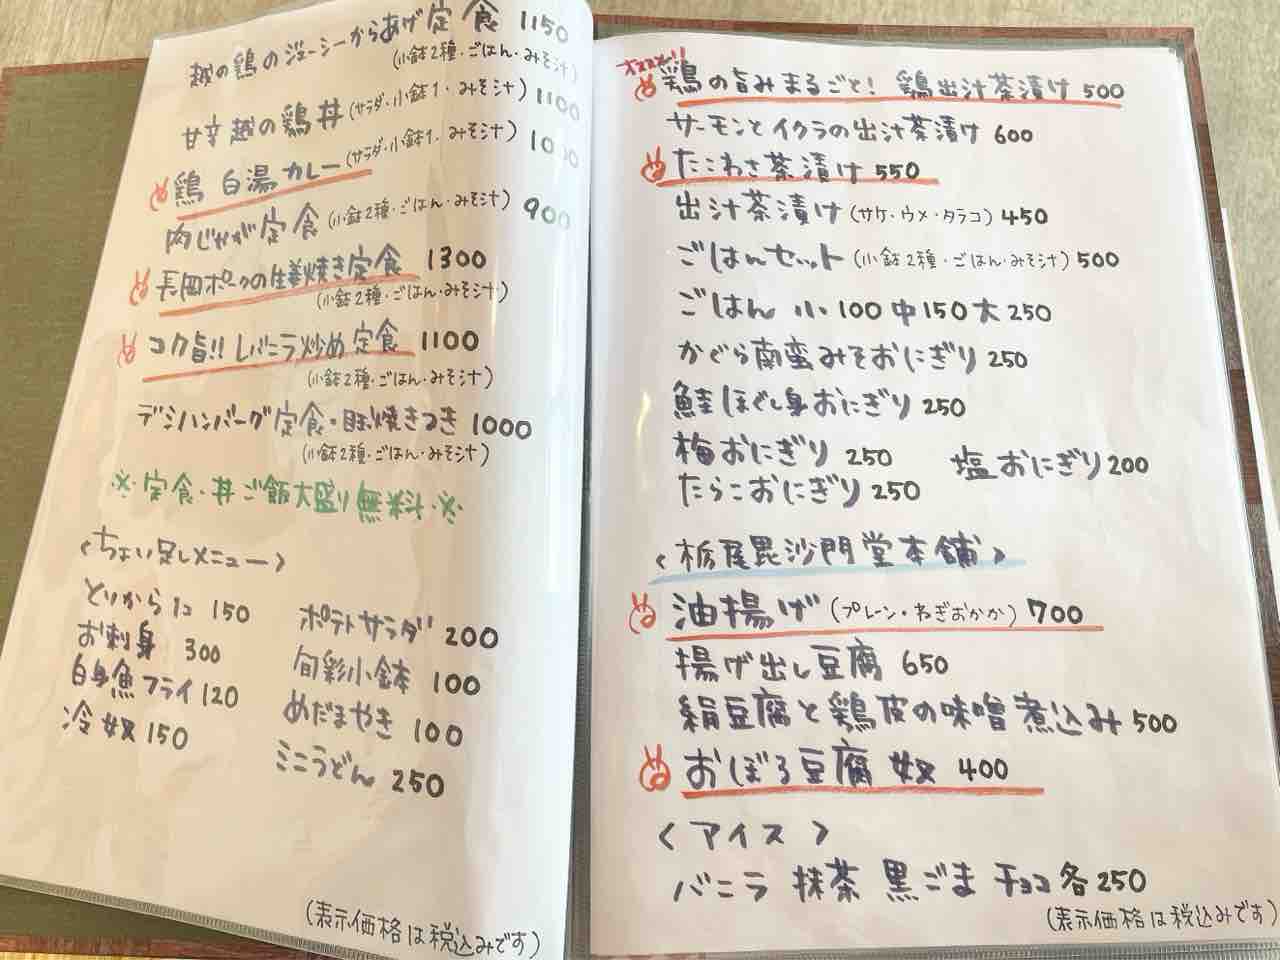 越の鶏のジューシーからあげ定食 1150
(小鉢2種・ごはん・みそ汁)
甘辛越の鶏丼(サラダ・小鉢1・みそ汁) 1100
鶏白湯カレー(サラダ・小鉢1・みそ汁) 1000
肉じゃが定食(小鉢2種・ごはん・みそ汁) 900
長岡ポークの生姜焼き定食 1300
(小鉢2種・ごはん・みそ汁)
コク旨!!レバニラ炒め定食 1100
(小鉢2種・ごはん・みそ汁)
デミハンバーグ定食・目玉焼きつき 1000
(小鉢2種・ごはん・みそ汁)
※定食・丼ご飯大盛り無料※
<ちょい足しメニュー>
とりから1コ 150
お刺身 300
白身魚フライ 120
冷奴 150
ポテトサラダ 200
旬彩小鉢 100
めだまやき 100
ミニうどん 250
(表示価格は税込みです)
オススメ!!
鶏の旨みまるごと! 鶏出汁茶漬け 500
サーモンとイクラの出汁茶漬け 600
たこわさ茶漬け 550
出汁茶漬け(サケ・ウメ・タラコ) 450
ごはんセット(小鉢2種・ごはん・みそ汁) 500
ごはん 小100 中150 大250
かぐら南蛮みそおにぎり 250
鮭ほぐし身おにぎり 250
梅おにぎり 250 塩おにぎり 200
たらこおにぎり 250
<栃尾毘沙門堂本舗>
油揚げ(プレーン・ねぎおかか) 700
揚げ出し豆腐 650
絹豆腐と鶏皮の味噌煮込み 500
おぼろ豆腐奴 400
<アイス>
バニラ 抹茶 黒ごま チョコ 各250
(表示価格は税込みです)